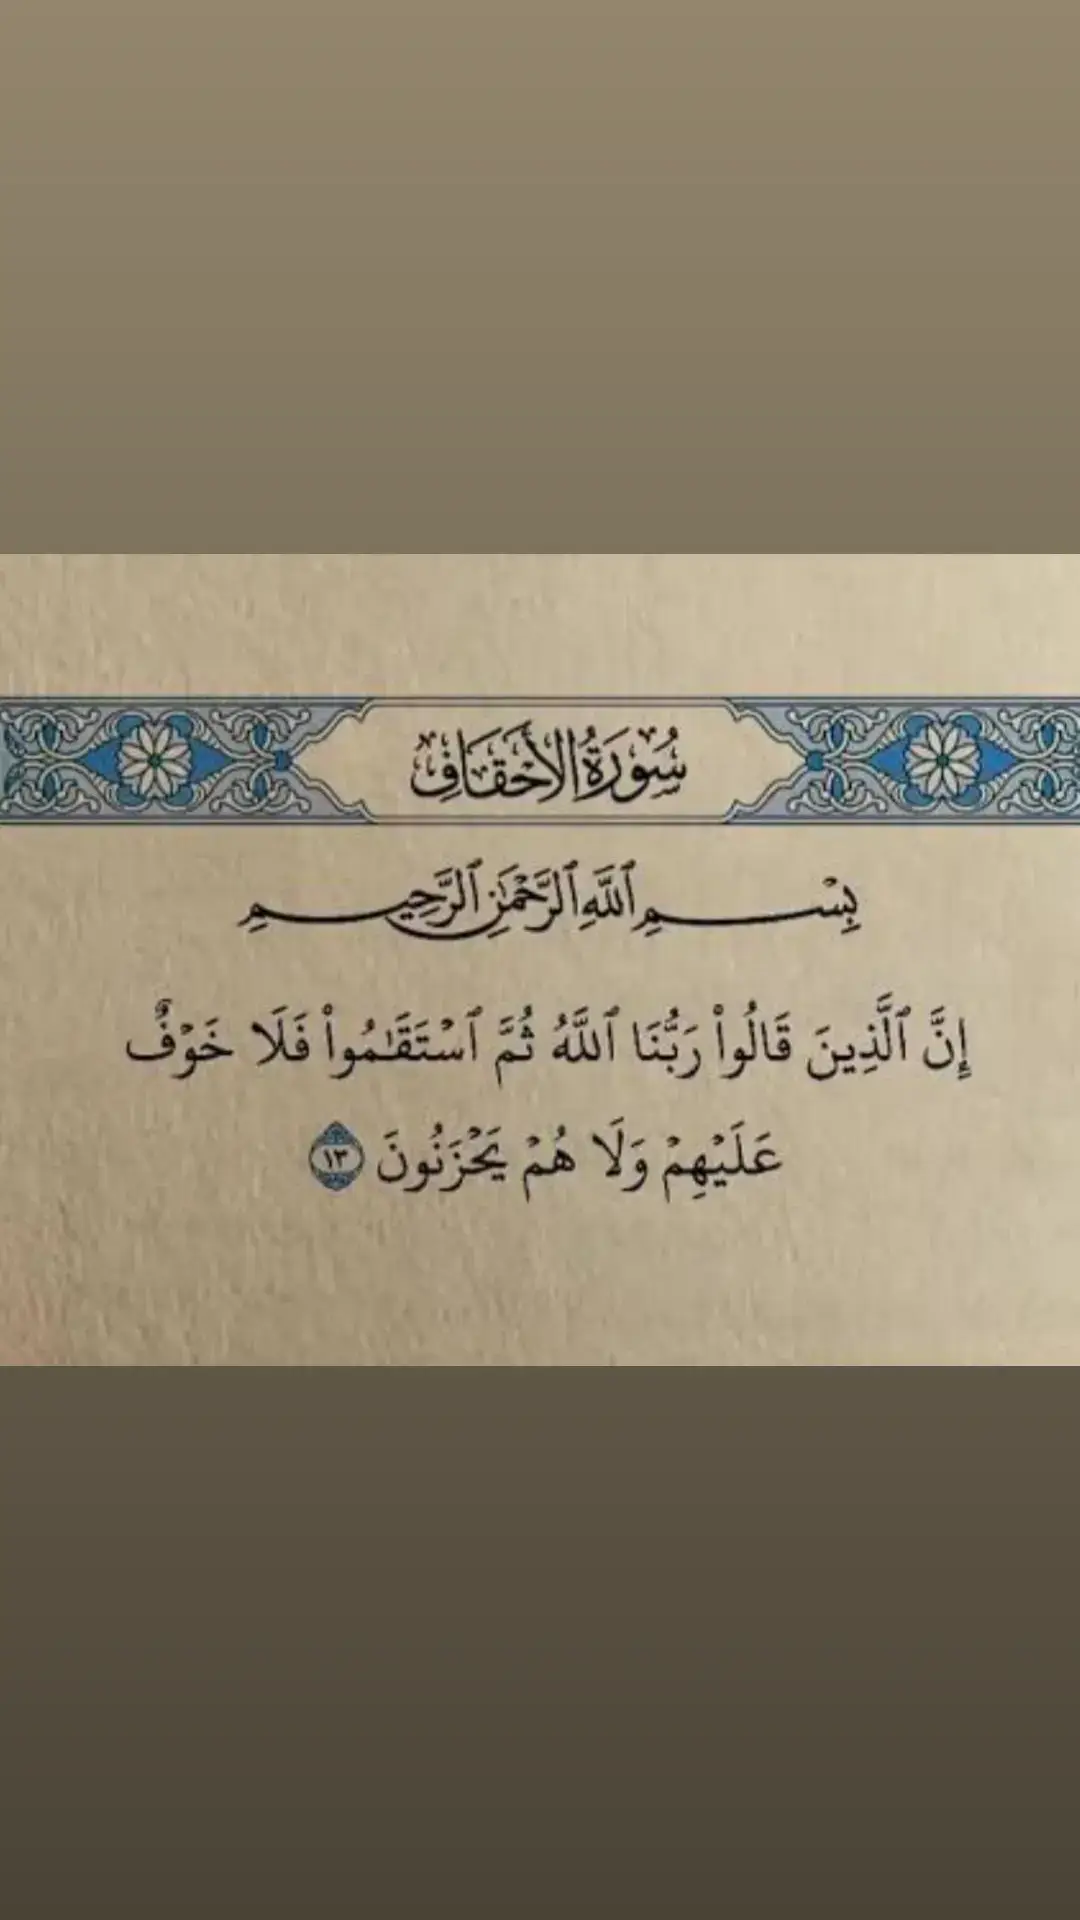 سُورَةُ الأَحۡقَافِ
بِسۡمِ ٱللَّهِ ٱلرَّحۡمَٰنِ ٱلرَّحِيمِ
إِنَّ ٱلَّذِينَ قَالُوا۟ رَبُّنَا ٱللَّهُ ثُمَّ ٱسۡتَقَٰمُوا۟ فَلَا خَوۡفٌ
عَلَيۡهِمۡ وَلَا هُمۡ يَحۡزَنُونَ ١٣